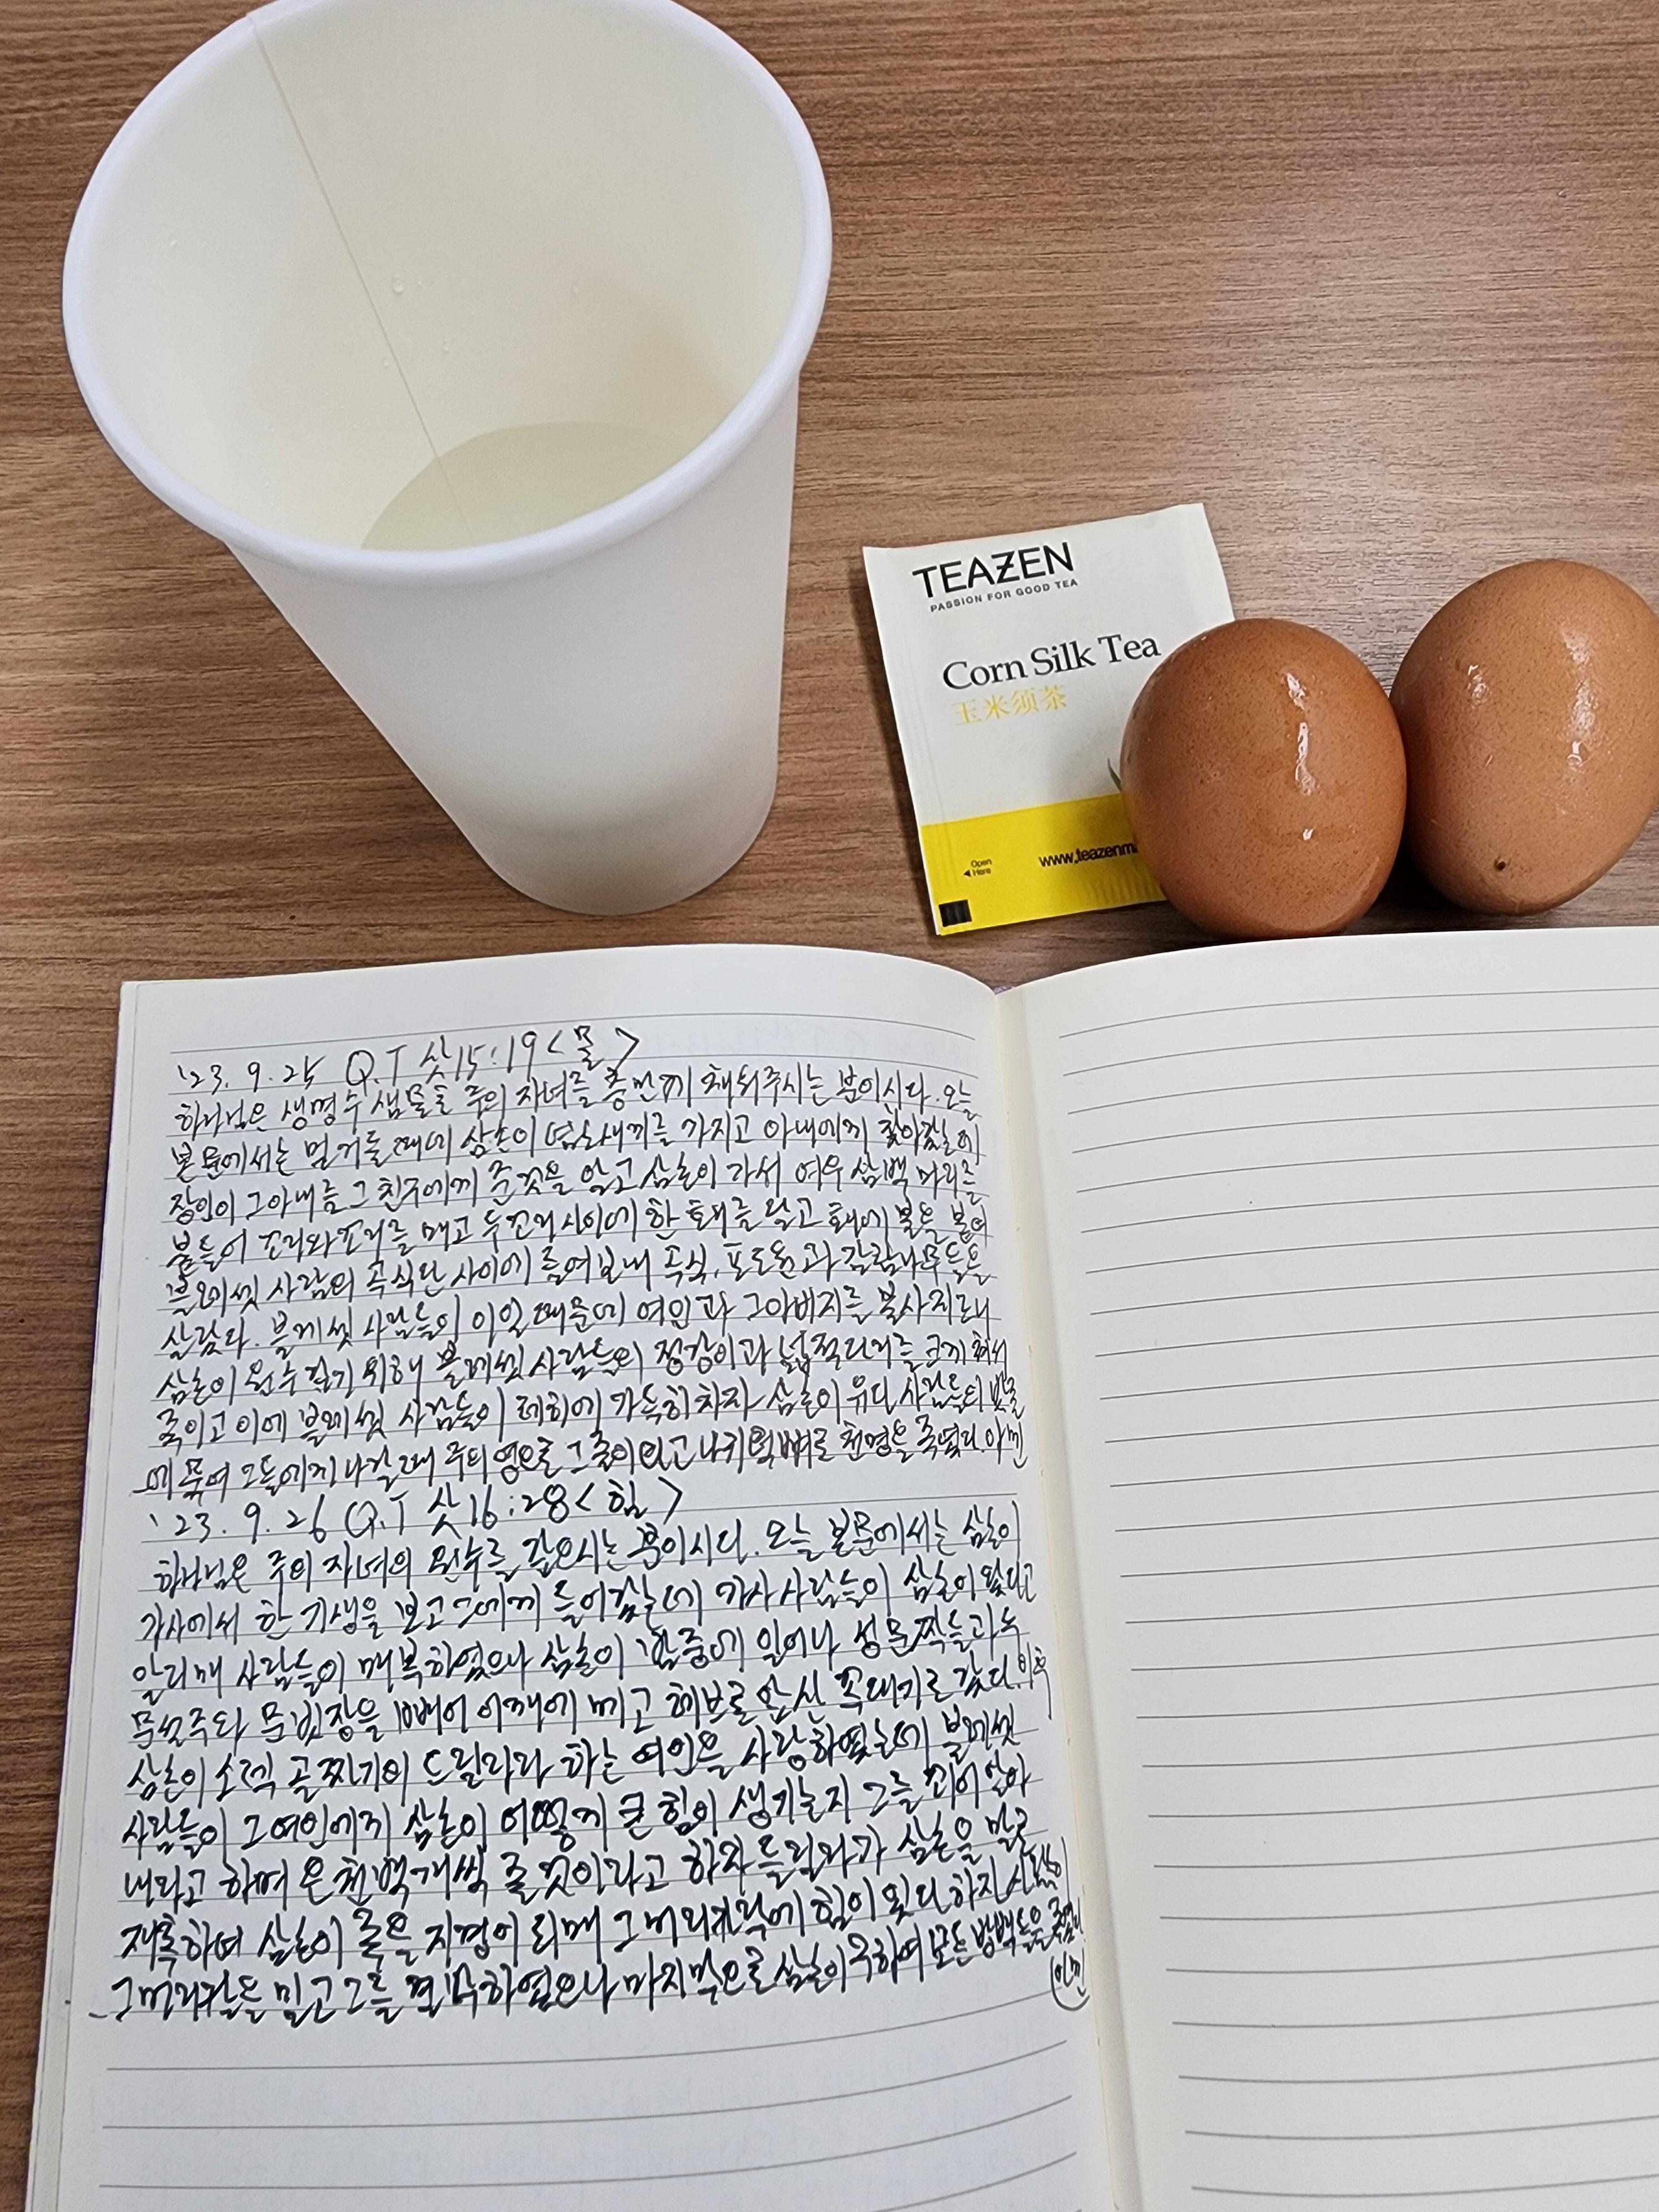 TEAZEN
PASSION FOR GOOD TEA
Corn Silk Tea
玉米须茶
Open
Here
www.teazenm
'23. 9. 25 Q.T 삿15:19 <물>
하나님은 생명수 샘물로 주의 자녀를 충만케 채워주시는 분이시다. 오늘
본문에서는 밀 거둘 때에 삼손이 염소새끼를 가지고 아내에게 찾아갔는데
장인이 그 아내를 그 친구에게 준것을 알고 삼손이 가서 여우 삼백 마리를
붙들어 꼬리와 꼬리를 매고 두 꼬리 사이에 한 홰를 달고 홰에 불을 붙여
블레셋 사람의 곡식단 사이에 들여보내 곡식, 포도원과 감람나무들을
살랐다. 블레셋 사람들이 이일 때문에 여인과 그아버지를 불사지르니
삼손이 원수 갚기 위해 블레셋 사람들의 정강이과 넓적다리를 크게 쳐서
죽이고 이에 블레셋 사람들이 레히에 가득히 차자 삼손이 유다 사람들의 밧줄
에 묶여 그들에게 나갈 때 주의 영으로 그 줄이 나귀 턱뼈로 천명을 죽였다 아멘
'23. 9. 26 Q.T 삿16:28 <힘>
하나님은 주의 자녀의 원수를 갚으시는 분이시다. 오늘 본문에서는 삼손이
가사에서 한 기생을 보고 그에게 들어갔는데 가사 사람들이 삼손이 왔다고
알리매 사람들이 매복하였으나 삼손이 밤중에 일어나 성 문짝들과 두
문설주와 문빗장을 빼어 어깨에 메고 헤브론 앞 산 꼭대기로 갔다. 이후
삼손이 소렉 골짜기의 드릴라라 하는 여인을 사랑하였는데 블레셋
사람들이 그여인에게 삼손이 어떻게 큰 힘이 생기는지 그를 꾀어 알아
내라고 하며 은 천백개씩 줄 것이라고 하자 들릴라가 삼손을 말로
재촉하여 삼손이 죽을 지경이 되매 그 머리카락에 힘이 있다 하자
그 머리카락을 밀고 그를 결박하였으나 마지막으로 삼손이 구하여 모든 방백들을 죽였다
아멘